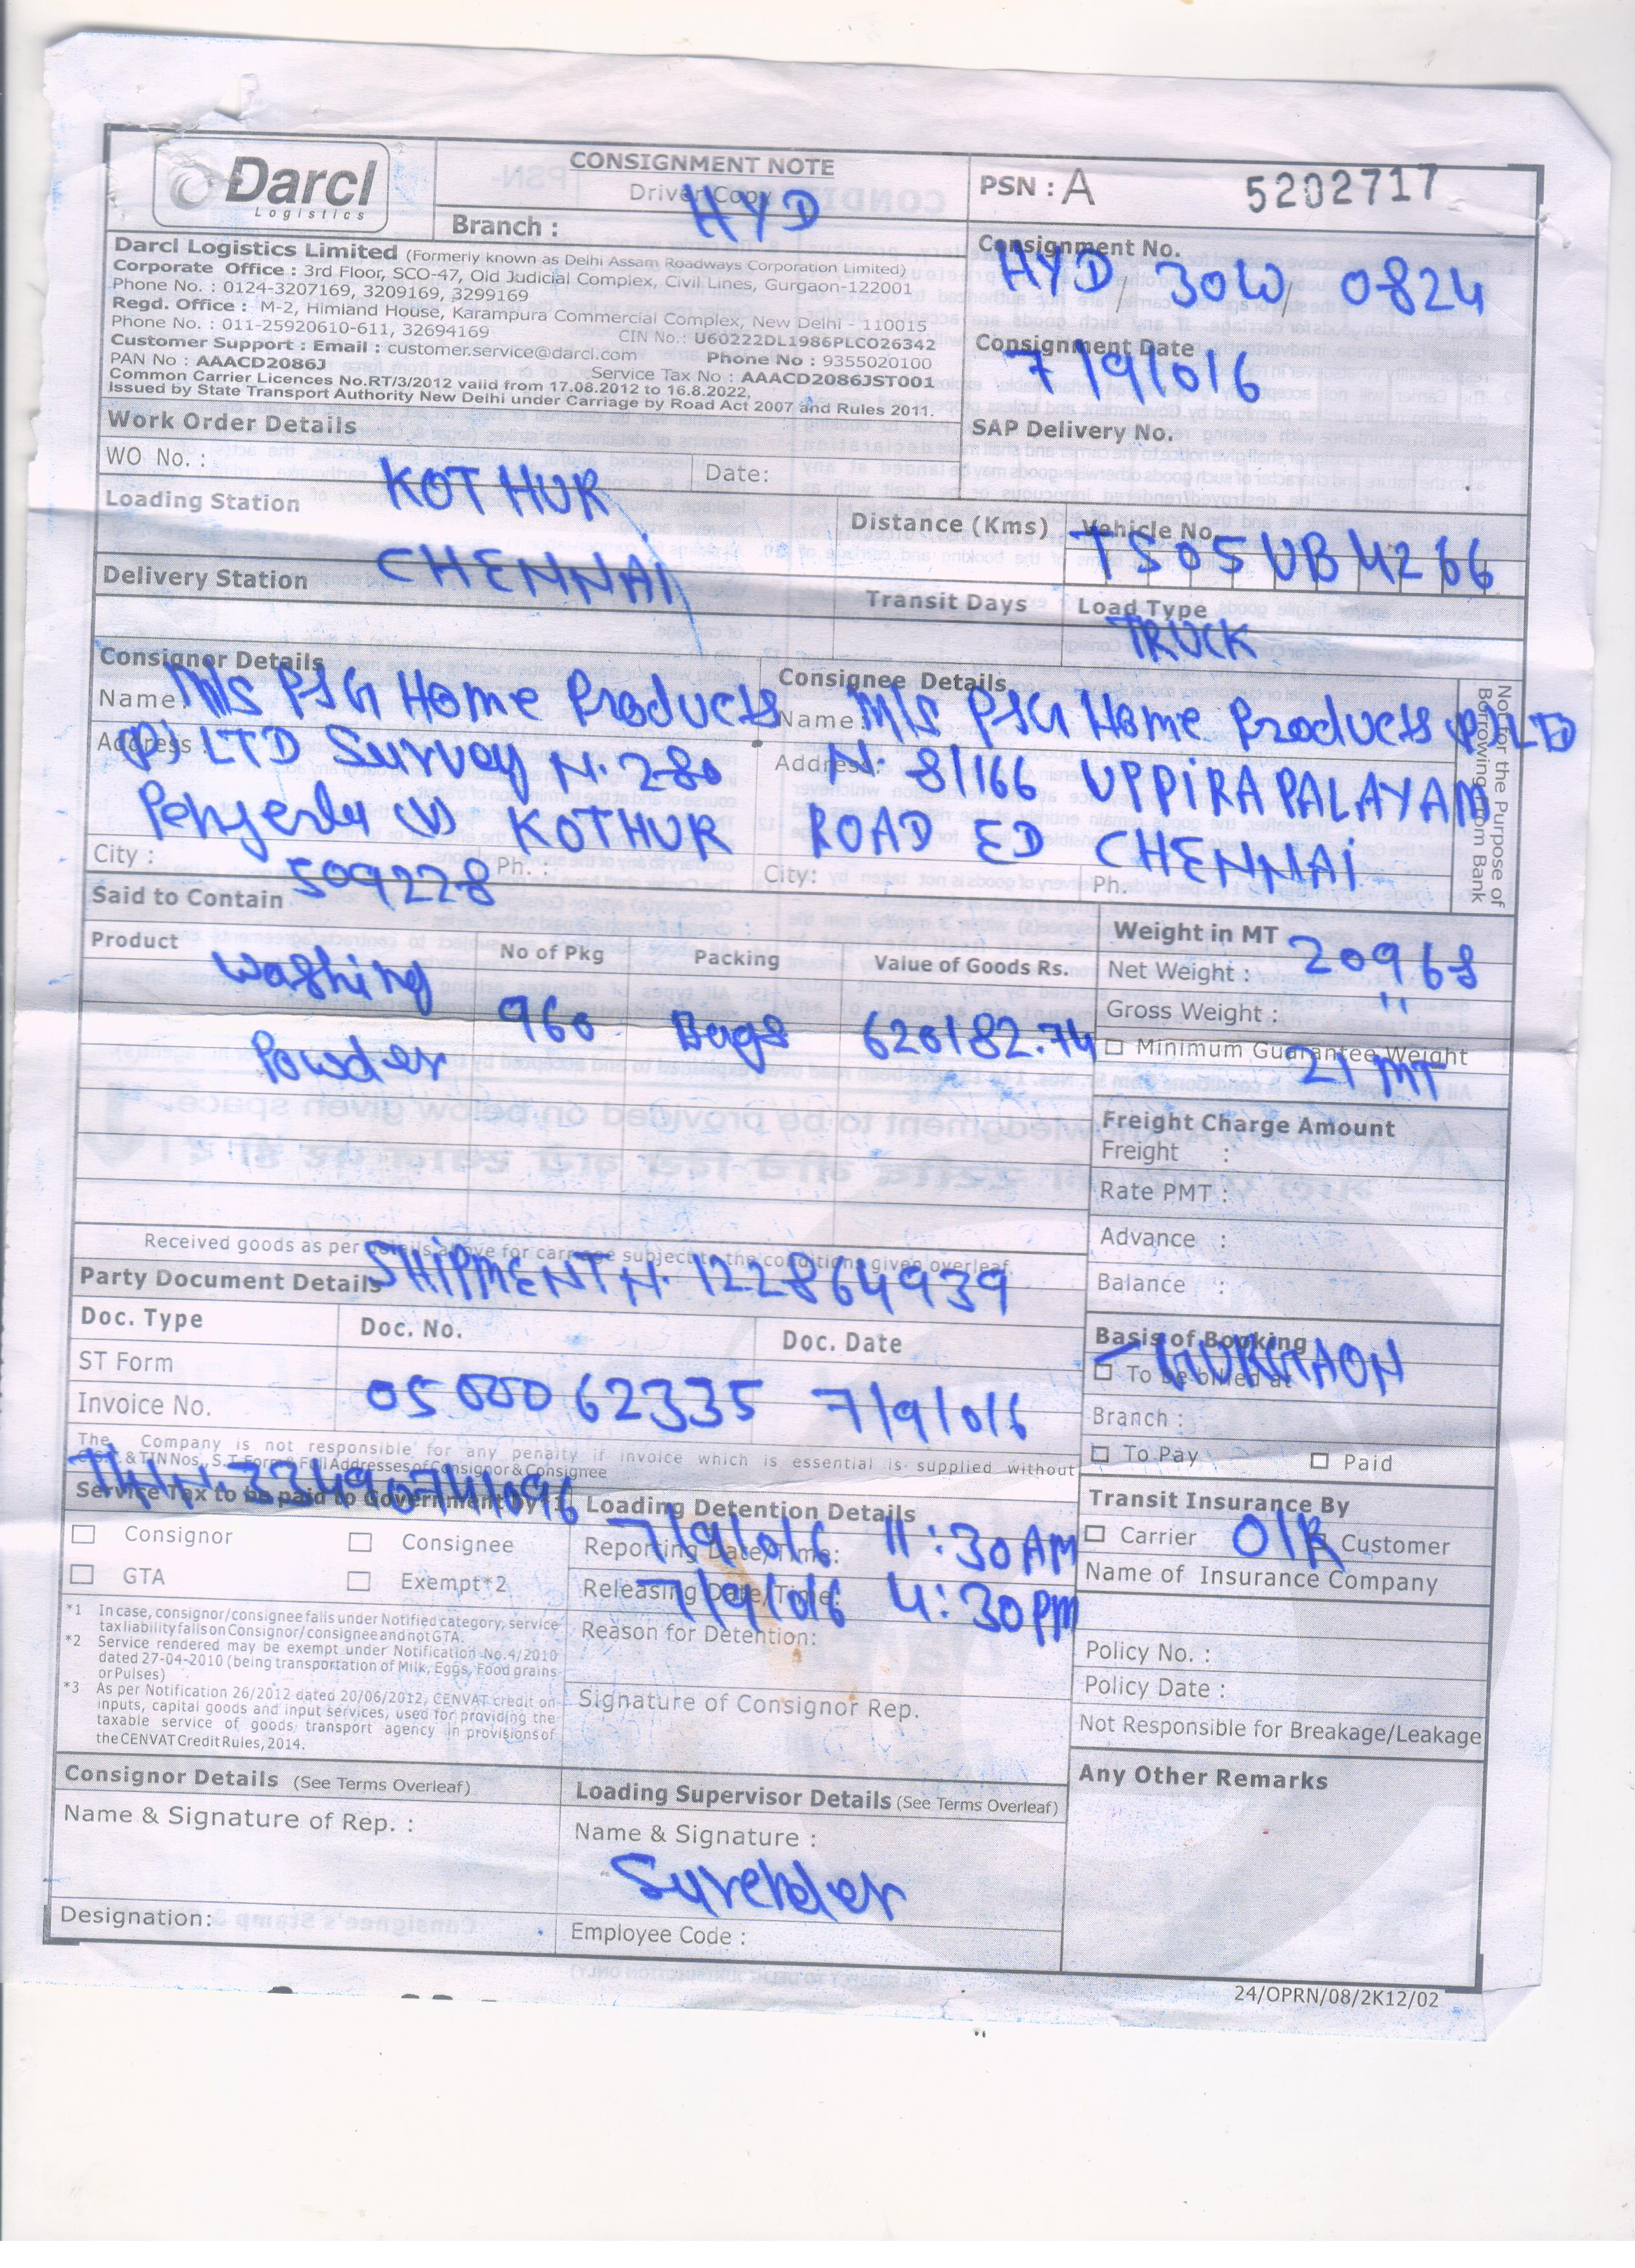 Darcl
Logistics
CONSIGNMENT NOTE
Driver Copy
Branch : HYD
PSN : A 5202717
Darcl Logistics Limited (Formerly known as Delhi Assam Roadways Corporation Limited)
Corporate Office : 3rd Floor, SCO-47, Old Judicial Complex, Civil Lines, Gurgaon-122001
Phone No. : 0124-3207169, 3209169, 3299169
Regd. Office : M-2, Himland House, Karampura Commercial Complex, New Delhi - 110015
Phone No. : 011-25920610-611, 32694169 CIN No.: U60222DL1986PLCO26342
Customer Support : Email : customer.service@darcl.com Phone No : 9355020100
PAN No : AAACD2086J Service Tax No : AAACD2086JST001
Common Carrier Licences No.RT/3/2012 valid from 17.08.2012 to 16.8.2022,
Issued by State Transport Authority New Delhi under Carriage by Road Act 2007 and Rules 2011.
Consignment No.
HYD 30W 0824
Consignment Date
7/9/016
SAP Delivery No.
Work Order Details
WO No. : Date:
Loading Station KOTHUR
Distance (Kms)
Vehicle No.
TS05UB4266
Delivery Station CHENNAI
Transit Days
Load Type
TRUCK
Consignor Details
Name: M/s P&G Home Products
Address : (P) LTD Survey N. 280
(V) KOTHUR
City : 509228 Ph. :
Consignee Details
Name: M/s P&G Home Products (P) LTD
Address: N. 8/166 UPPIRAPALAYAM
ROAD ED CHENNAI
City: Ph.
Not for the Purpose of
Borrowing from Bank
Said to Contain
Product No of Pkg Packing Value of Goods Rs.
Washing
Powder 960 Bags 620182.74
Weight in MT
Net Weight : 20968
Gross Weight : "
Minimum Guarantee Weight
21 MT
Freight Charge Amount
Freight :
Rate PMT :
Advance :
Balance :
Received goods as per details above for carriage subject to the conditions given overleaf.
Party Document Details SHIPMENT N. 122864939
Doc. Type Doc. No. Doc. Date
ST Form
Invoice No. 0500062335 7/9/016
The Company is not responsible for any penalty if invoice which is essential is supplied without
& TIN Nos., S.T. Form & Full Addresses of Consignor & Consignee
Basis of Booking
To be billed at GURGAON
Branch :
To Pay Paid
Service Tax to be paid to Government by*1
Consignor Consignee
GTA Exempt*2
*1 In case, consignor/consignee falls under Notified category, service
tax liability falls on Consignor/consignee and not GTA.
*2 Service rendered may be exempt under Notification No.4/2010
dated 27-04-2010 (being transportation of Milk, Eggs, Food grains
or Pulses)
*3 As per Notification 26/2012 dated 20/06/2012, CENVAT credit on
inputs, capital goods and input services, used for providing the
taxable service of goods transport agency in provisions of
the CENVAT Credit Rules, 2014.
Loading Detention Details
Reporting Date/Time: 7/9/016 11:30AM
Releasing Date/Time: 7/9/016 4:30PM
Reason for Detention:
Signature of Consignor Rep.
Transit Insurance By
Carrier O/R Customer
Name of Insurance Company
Policy No. :
Policy Date :
Not Responsible for Breakage/Leakage
Consignor Details (See Terms Overleaf)
Name & Signature of Rep. :
Designation:
Loading Supervisor Details (See Terms Overleaf)
Name & Signature :
Surender
Employee Code :
Any Other Remarks
24/OPRN/08/2K12/02